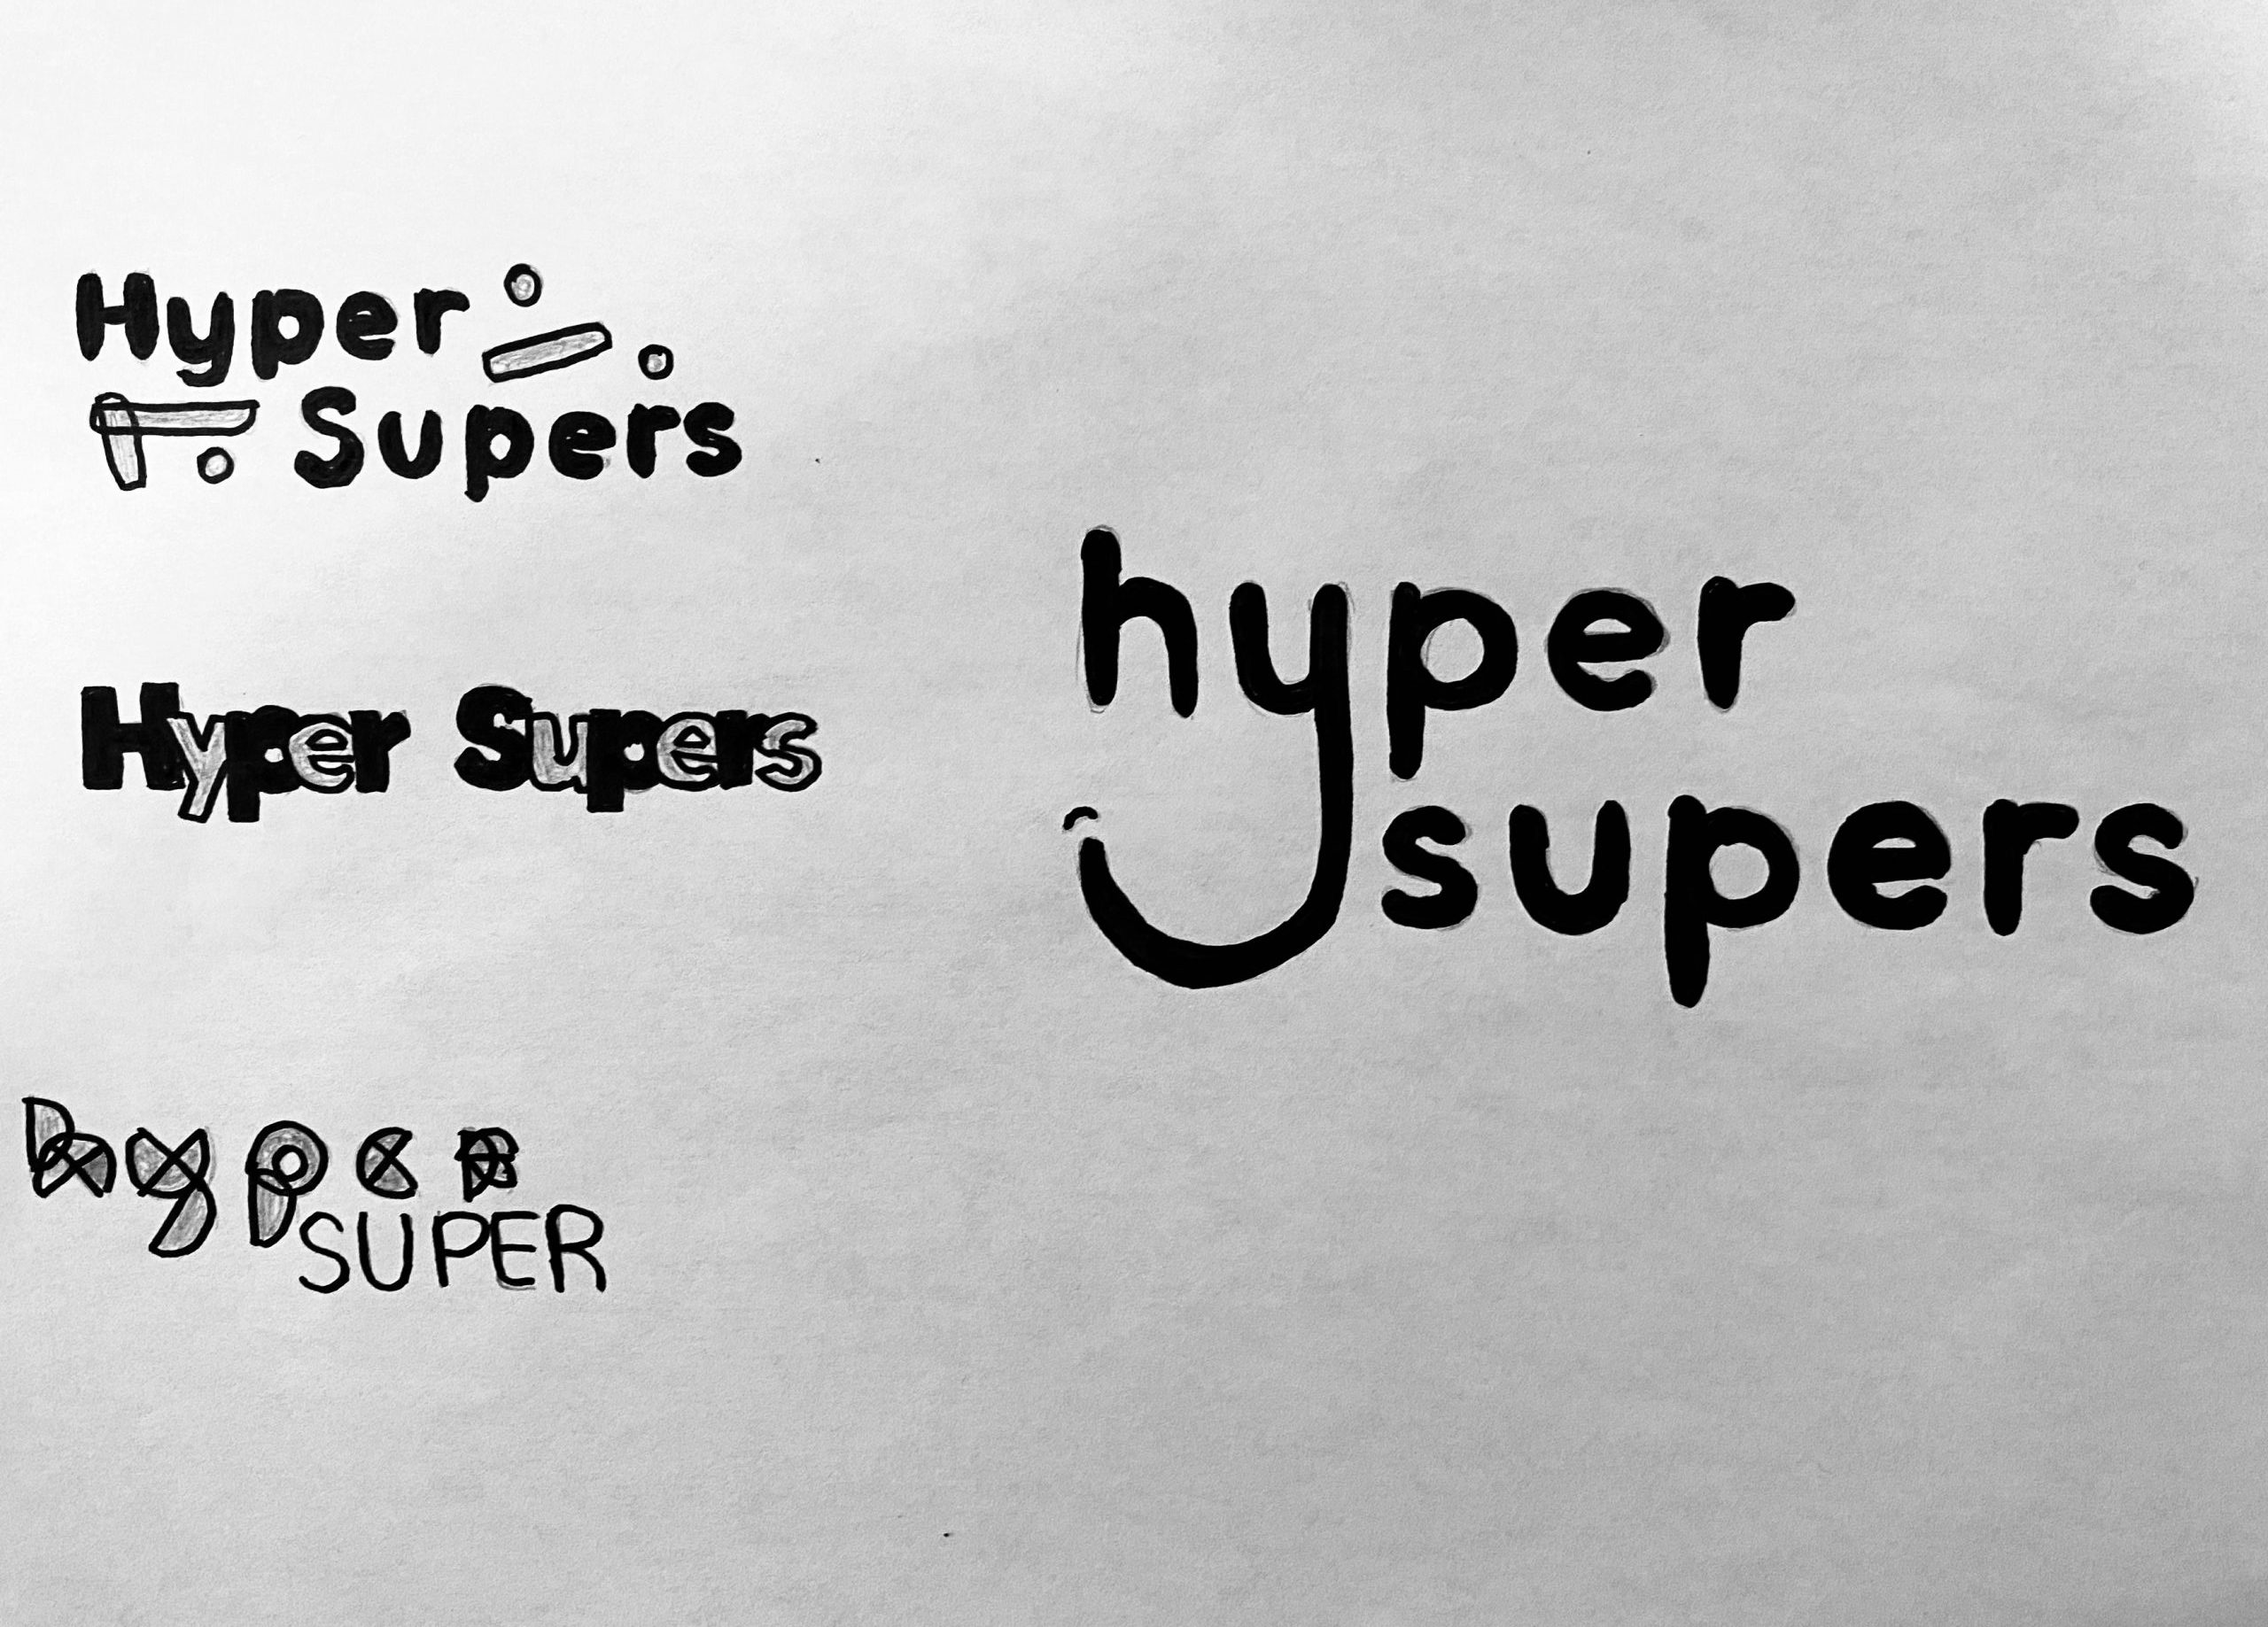 Hyper
Supers
Hyper Supers
hyper
SUPER
hyper
supers